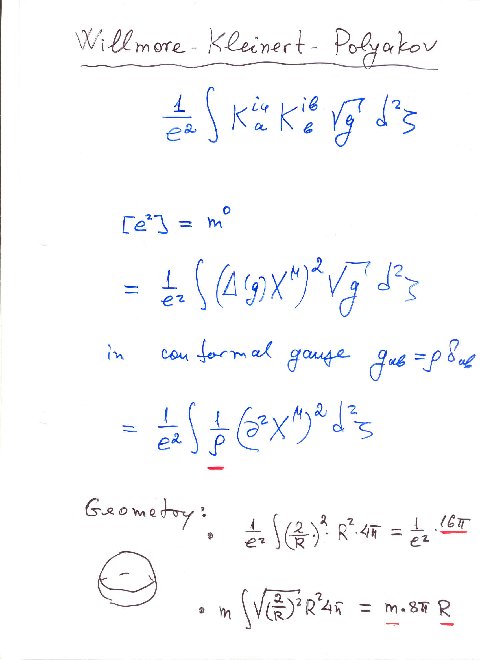 Willmore - Kleinert - Polyakov
1/e² ∫ K^{ia}_a K^{ib}_b √g d²ζ
[e²] = m⁰
= 1/e² ∫ (Δ(g)X^μ)² √g d²ζ
in conformal gauge g_{ab} = ρ δ_{ab}
= 1/e² ∫ 1/ρ (∂²X^μ)² d²ζ
Geometry:
• 1/e² ∫ (2/R)² · R² · 4π = 1/e² · 16π
• m ∫ √(2/R)² R² 4π = m · 8π R